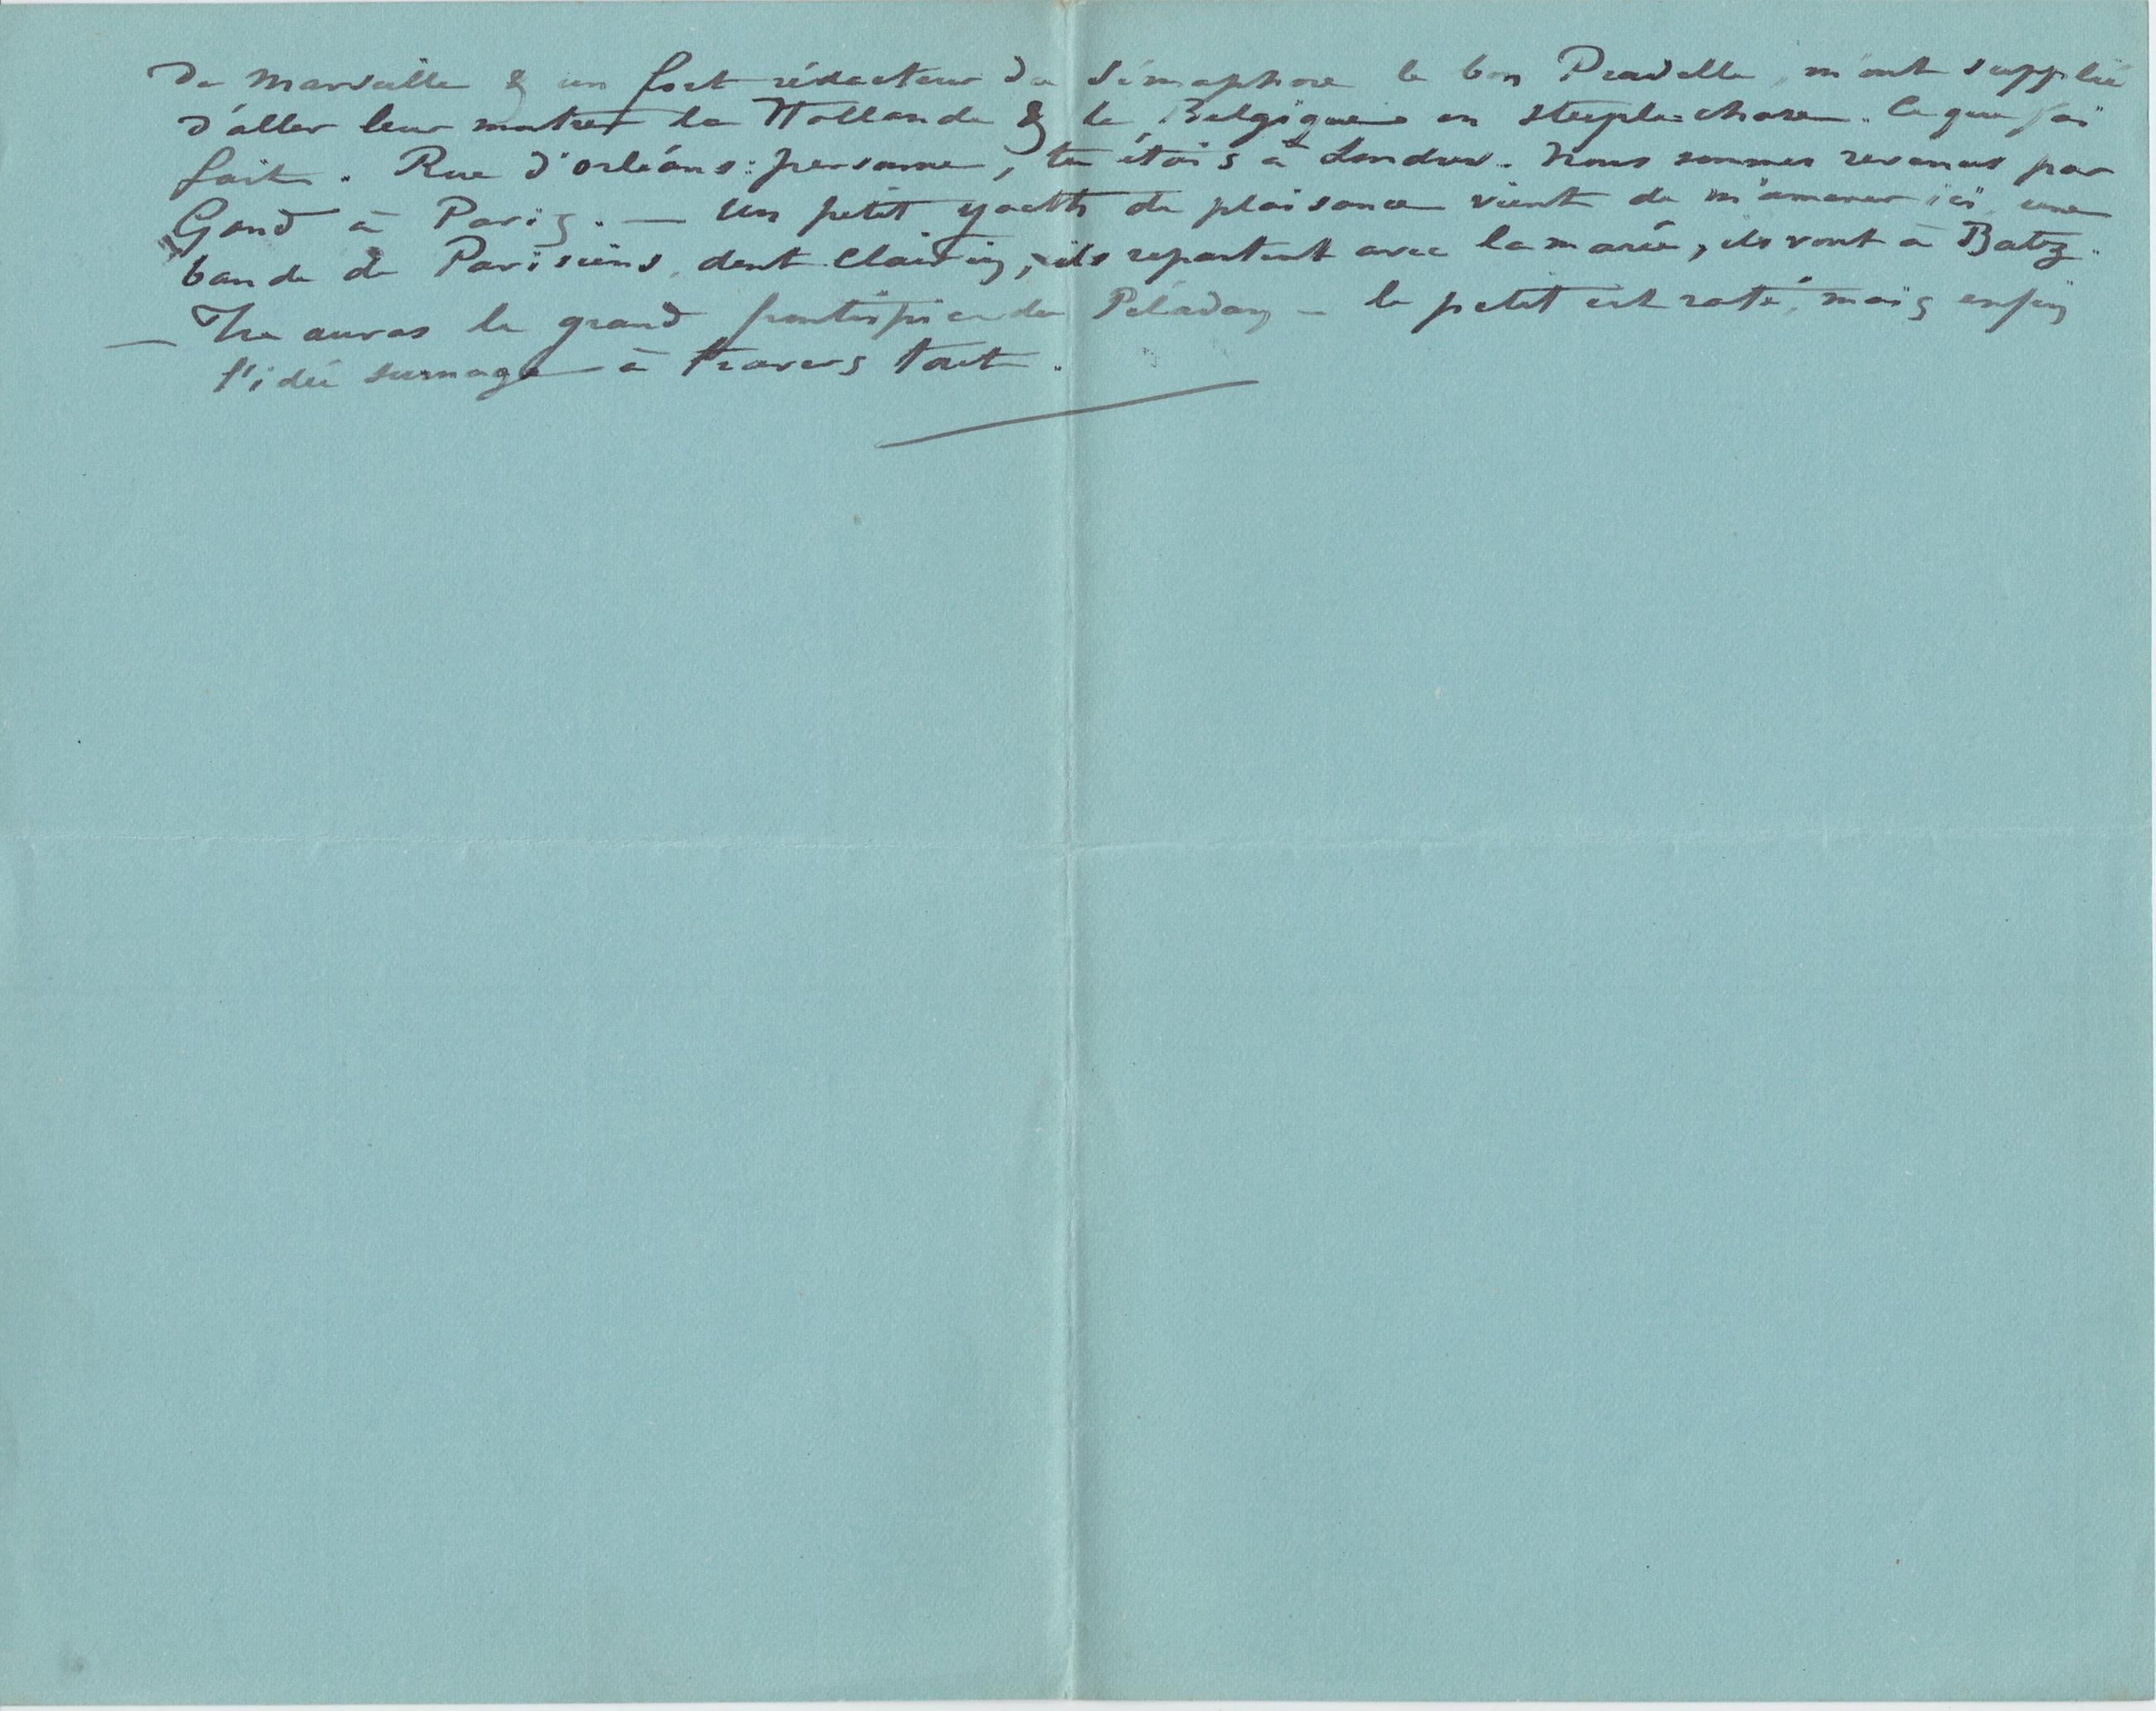 de Marseille & un fort rédacteur du Sémaphore le bon Pradelle, m'ont supplié
d'aller leur montrer la Hollande & la Belgique en steeple-chase. Ce que j'ai
fait. Rue d'orléans : personne, tu étais à Londres. Nous sommes revenus par
Gand à Paris. — Un petit yacht de plaisance vient de m'amener ici une
bande de Parisiens, dont Clairin, ils repartent avec la marée, ils vont à Batz.
— Tu auras le grand frontispice du Péladan — le petit est raté, mais enfin
l'idée surnage à travers tout.